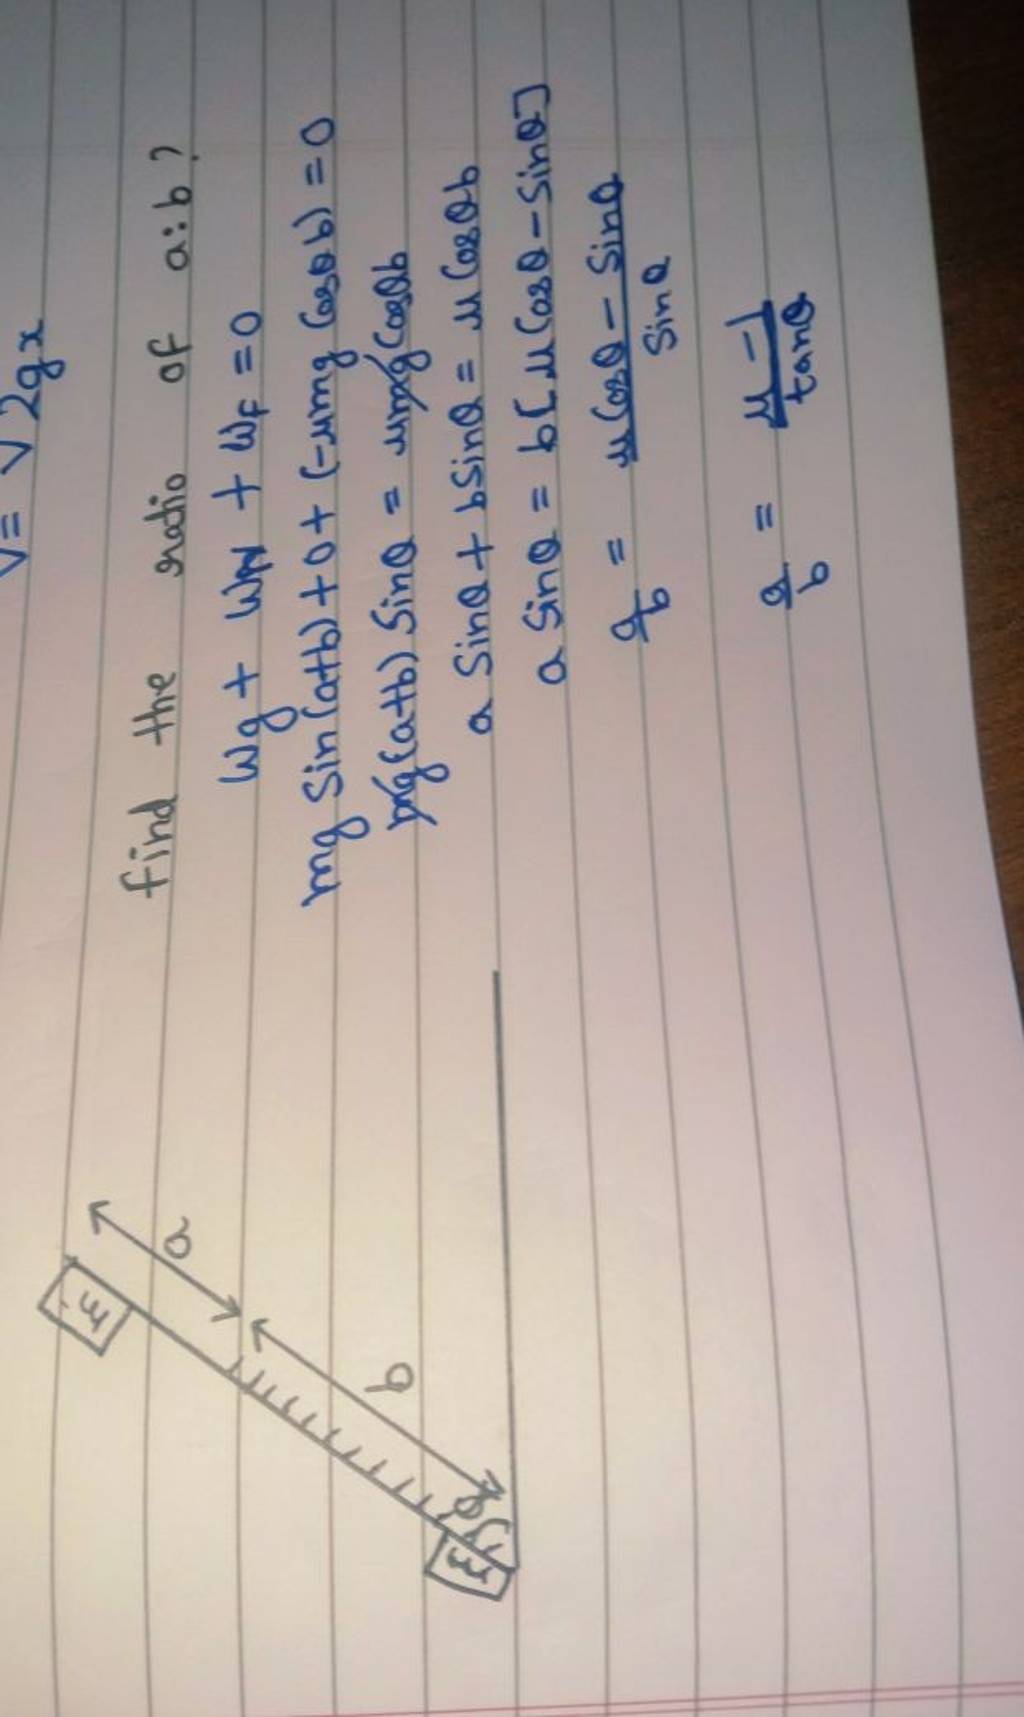 V = √2gx
find the ratio of a:b?
Wg + WN + WF = 0
mg Sin(a+b) + 0 + (-μmg Cosθ b) = 0
mg(a+b) Sinθ = μmg Cosθb
a Sinθ + b Sinθ = μ Cosθ b
a Sinθ = b[μ Cosθ - Sinθ]
a/b = μ Cosθ - Sinθ / Sinθ
a/b = μ - 1 / tanθ
m
a
b
θ
m